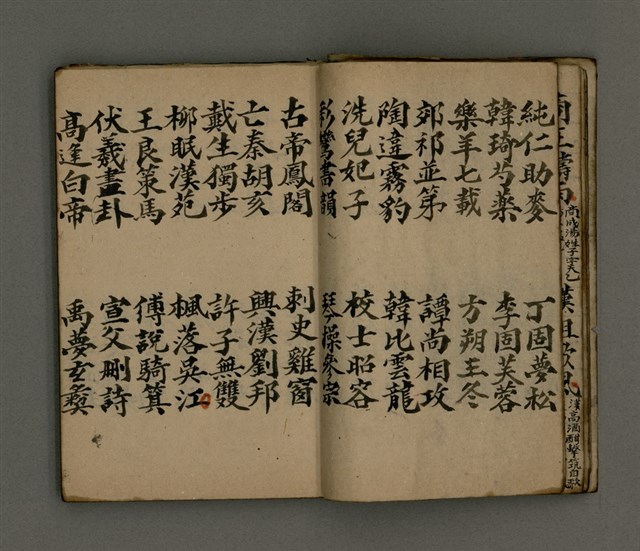 純仁助麥　丁固夢松
韓琦芍藥　李固芙蓉
樂羊七載　方朔三冬
郊祁並第　譚尚相攻
陶違霧豹　韓比雲龍
洗兒妃子　校士昭容
彩鸞書韻　琴操參宗
古帝鳳閣　刺史雞窗
亡秦胡亥　興漢劉邦
戴生獨步　許子無雙
柳眠漢苑　楓落吳江
王良策馬　傅說騎箕
伏羲畫卦　宣父刪詩
高逢白帝　禹夢玄彞